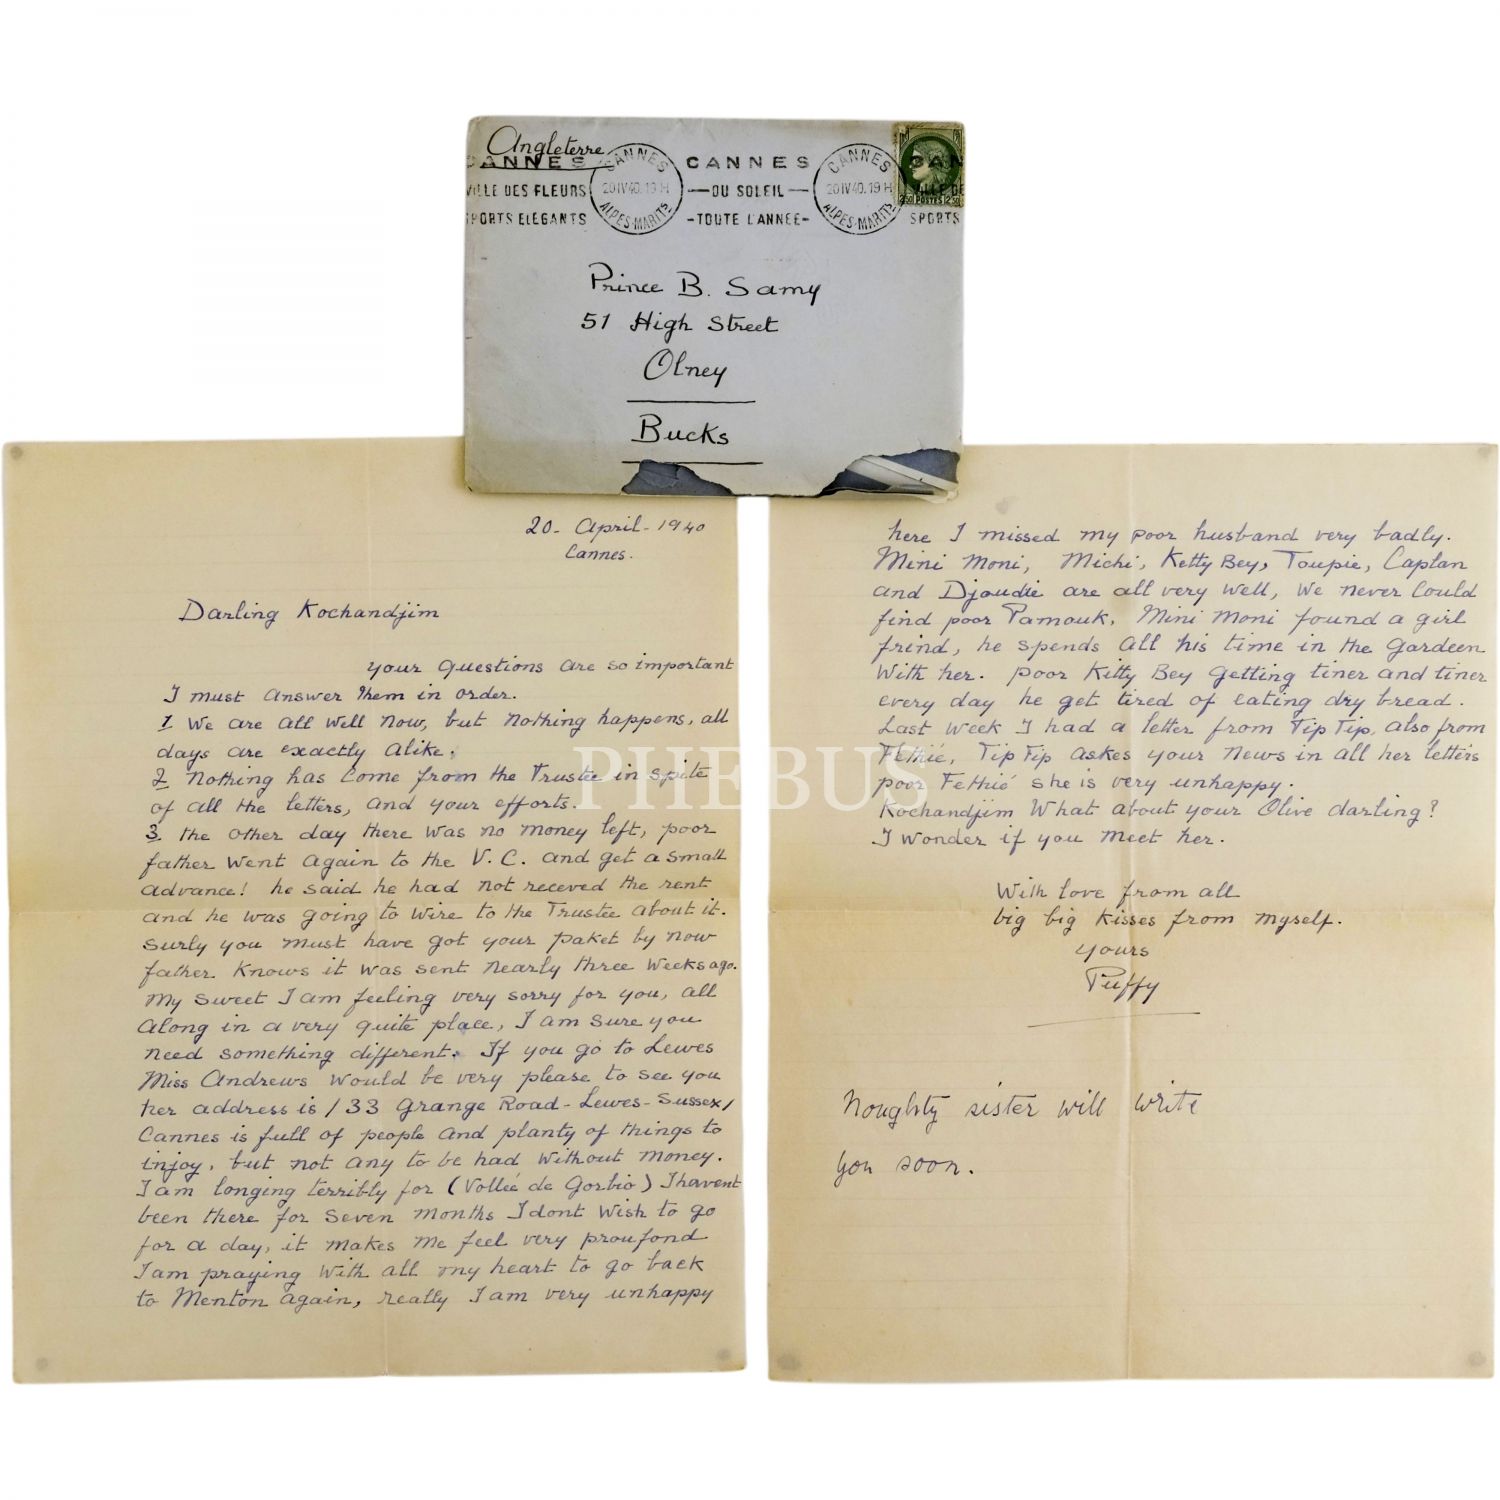 Angleterre
CANNES
VILLE DES FLEURS
SPORTS ELEGANTS
CANNES
20 IV 40. 19 H
ALPES-MARITS
CANNES
—DU SOLEIL—
-TOUTE L'ANNÉE-
CANNES
20 IV 40. 19 H
ALPES-MARITS
CAN
VILLE DE
SPORTS
2.50 POSTES 2.50
Prince B. Samy
51 High Street
Olney
Bucks
20- April-1940
Cannes.
Darling Kochandjim
your questions are so important
I must answer them in order.
1 We are all well now, but nothing happens, all
days are exactly alike.
2 Nothing has come from the Trustee in spite
of all the letters, and your efforts.
3 the other day there was no money left, poor
father went again to the V.C. and get a small
advance! he said he had not receved the rent
and he was going to wire to the Trustee about it.
surly you must have got your paket by now
father knows it was sent nearly three weeks ago.
My sweet I am feeling very sorry for you, all
along in a very quite place, I am sure you
need something different. If you go to Lewes
Miss Andrews would be very please to see you
her address is / 33 Grange Road-Lewes-Sussex/
Cannes is full of people and planty of things to
injoy, but not any to be had without money.
I am longing terribly for (Vollée de Gorbio) I havent
been there for seven months I dont wish to go
for a day, it makes me feel very proufond
I am praying with all my heart to go back
to Menton again, really I am very unhappy
here I missed my poor husband very badly.
Mini Moni, Michi, Ketty Bey, Toupie, Caplan
and Djoudie are all very well, we never could
find poor Pamouk. Mini Moni found a girl
frind, he spends all his time in the gardeen
with her. poor Kitty Bey getting tiner and tiner
every day he get tired of eating dry bread.
Last week I had a letter from Tip Tip, also from
Fethié, Tip Tip askes your news in all her letters
poor Fethié she is very unhappy.
Kochandjim What about your Olive darling?
I wonder if you meet her.
With love from all
big big kisses from myself.
yours
Puffy
Noughty sister will write
you soon.
PHEBUS